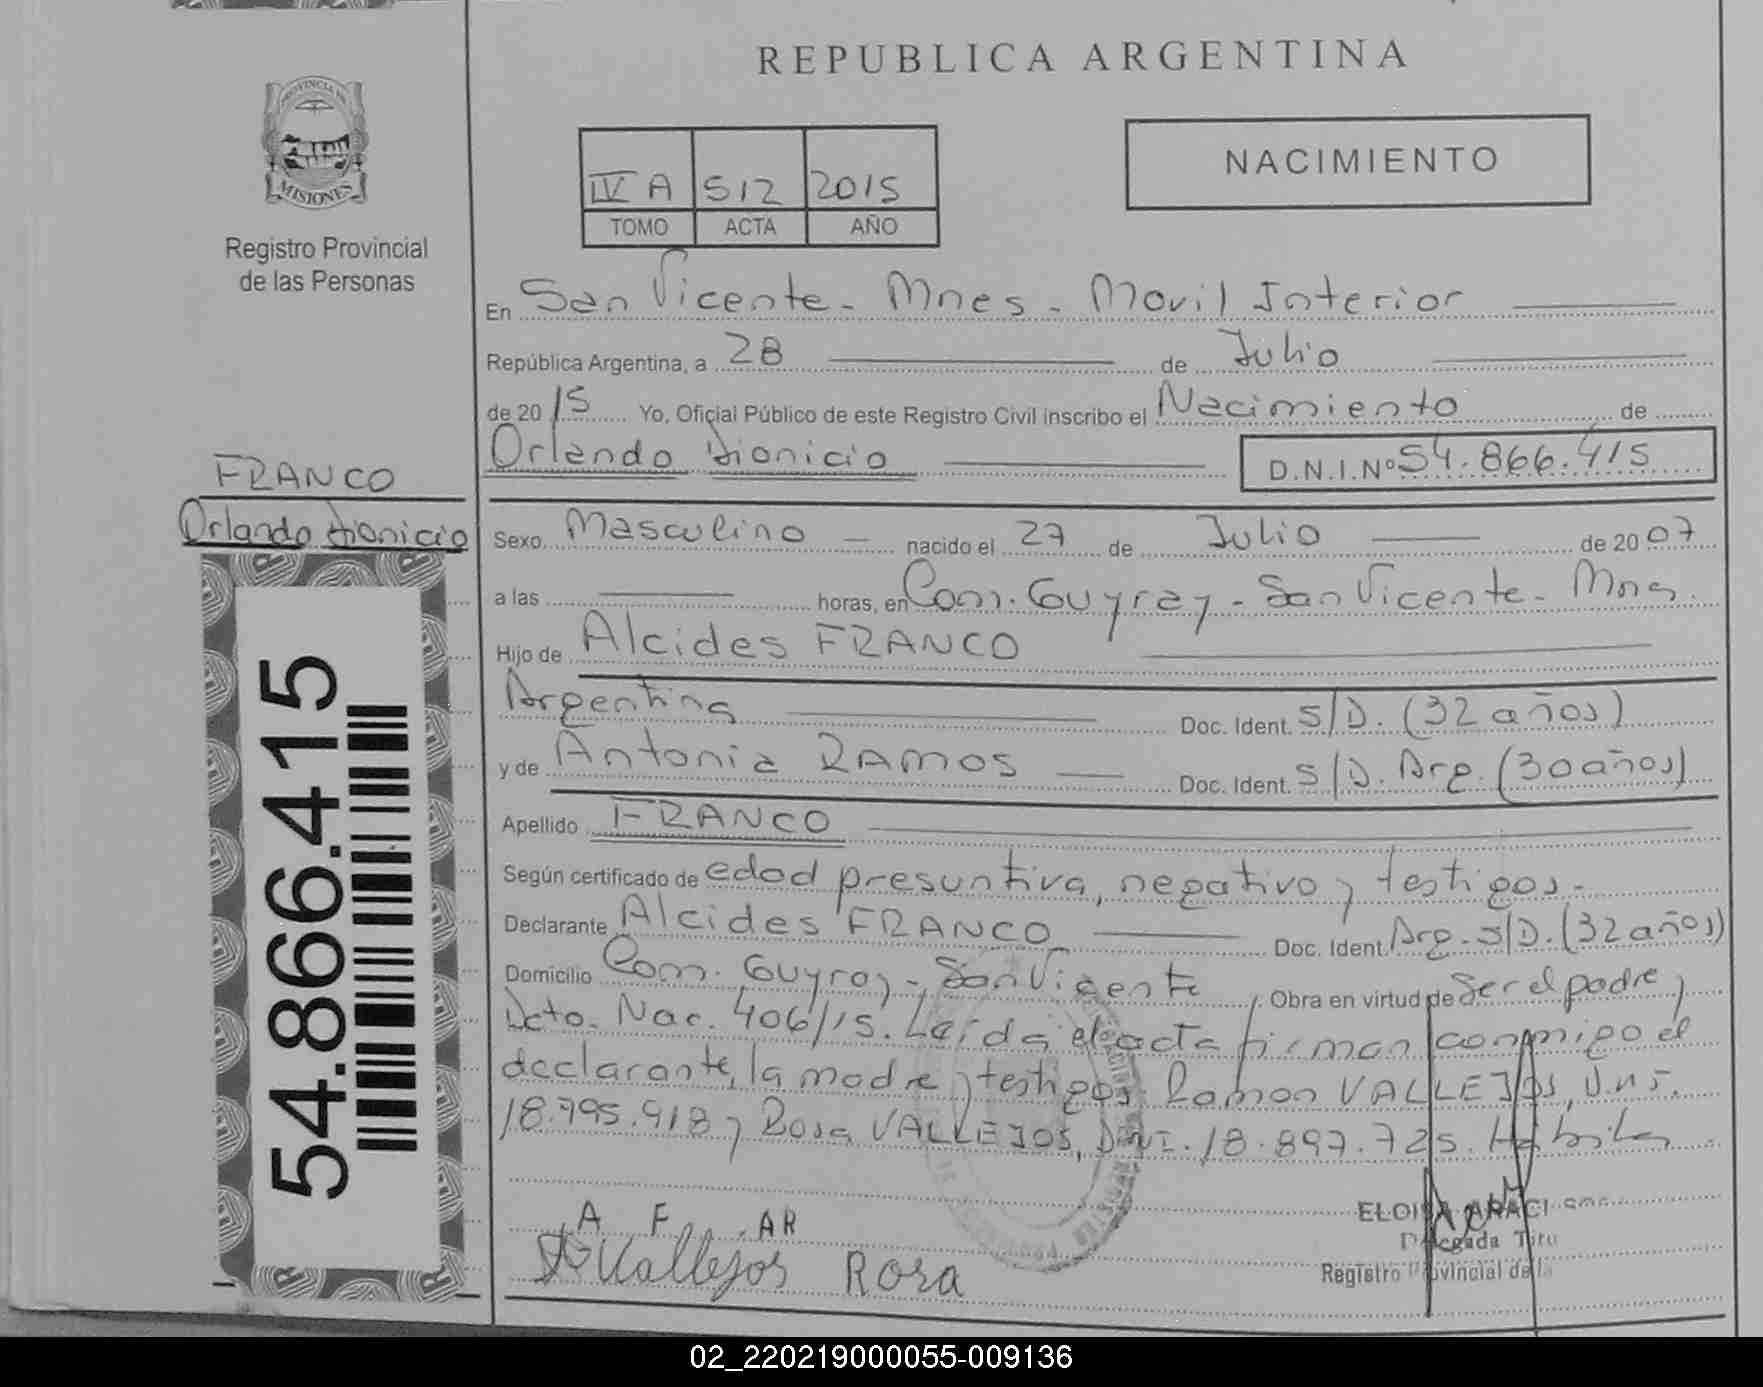 REPUBLICA ARGENTINA
PROVINCIA DE
MISIONES
Registro Provincial
de las Personas
IV A 512 2015
TOMO ACTA AÑO
NACIMIENTO
En San Vicente - Mnes - Movil Interior
República Argentina, a 28 de Julio
de 20 15 Yo, Oficial Público de este Registro Civil inscribo el Nacimiento de
Orlando Dionicio D.N.I.Nº 54.866.415
FRANCO
Orlando Dionicio
54.866.415
Sexo Masculino nacido el 27 de Julio de 20 07
a las horas, en Com. Guyray - San Vicente - Mnes.
Hijo de Alcides FRANCO
Argentina Doc. Ident. S/D. (32 años)
y de Antonia RAMOS Doc. Ident. S/D. Arg. (30 años)
Apellido FRANCO
Según certificado de edad presuntiva, negativo y testigos.-
Declarante Alcides FRANCO Doc. Ident. Arg. S/D. (32 años)
Domicilio Com. Guyray - San Vicente Obra en virtud de Ser el padre y
Dcto. Nac. 406/15. Leída el acta firman conmigo el
declarante, la madre y testigos Ramon VALLEJOS, D.N.I.
18.795.918 y Rosa VALLEJOS, DNI. 18.897.725. Hábiles
A F AR
Vallejos Rosa
ELOISA ARACI
Delegada Titu
Registro Provincial de la
02_220219000055-009136